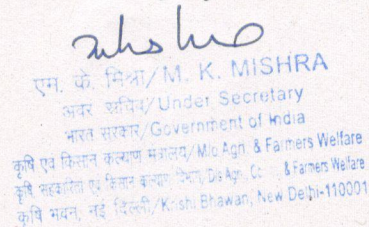 एम. के. मिश्रा/M. K. MISHRA
अवर सचिव/Under Secretary
भारत सरकार/Government of India
कृषि एवं किसान कल्याण मंत्रालय/M/o Agri. & Farmers Welfare
कृषि सहकारिता एवं किसान कल्याण विभाग, D/o Agri., & Farmers Welfare
कृषि भवन, नई दिल्ली/Krishi Bhawan, New Delhi-110001